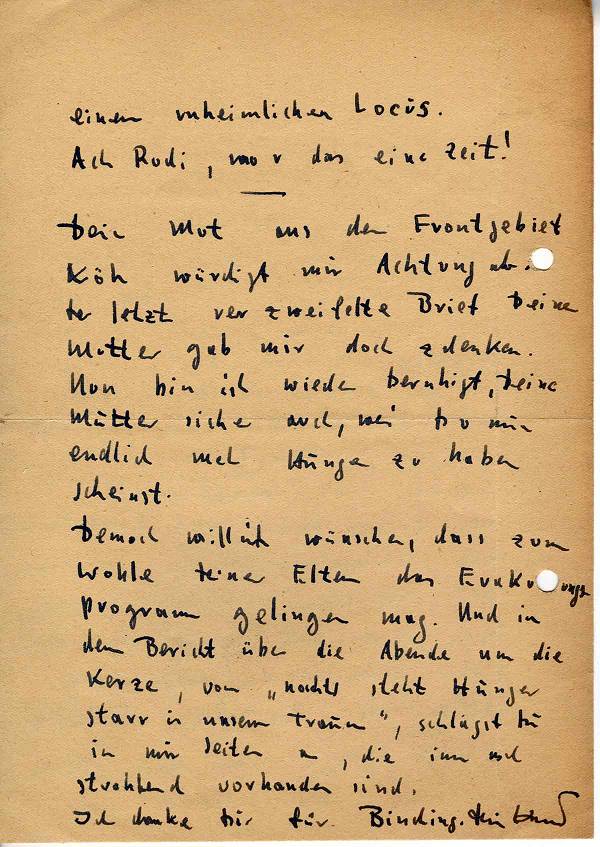 einen unheimlichen Locus.
Ach Rudi, war das eine Zeit!
Dein Mut aus dem Frontgebiet
Köln würdigt mir Achtung ab.
ter letzt verzweifelte Brief Deiner
Mutter gab mir doch z denken.
Nun bin ich wieder beruhigt, Deine
Mutter sicher auch, wei Du nun
endlich mal Hunger zu haben
scheinst.
Dennoch will ich wünschen, dass zum
Wohle Deiner Eltern das
programm gelingen mag. Und in
dem Bericht über die Abende um die
Kerze, vom „nachts steht Hunger
starr in unserm Traum", schlägst Du
in mir Seiten an, die immer noch
strahlend vorhanden sind.
Ich danke Dir für Binding. Dein